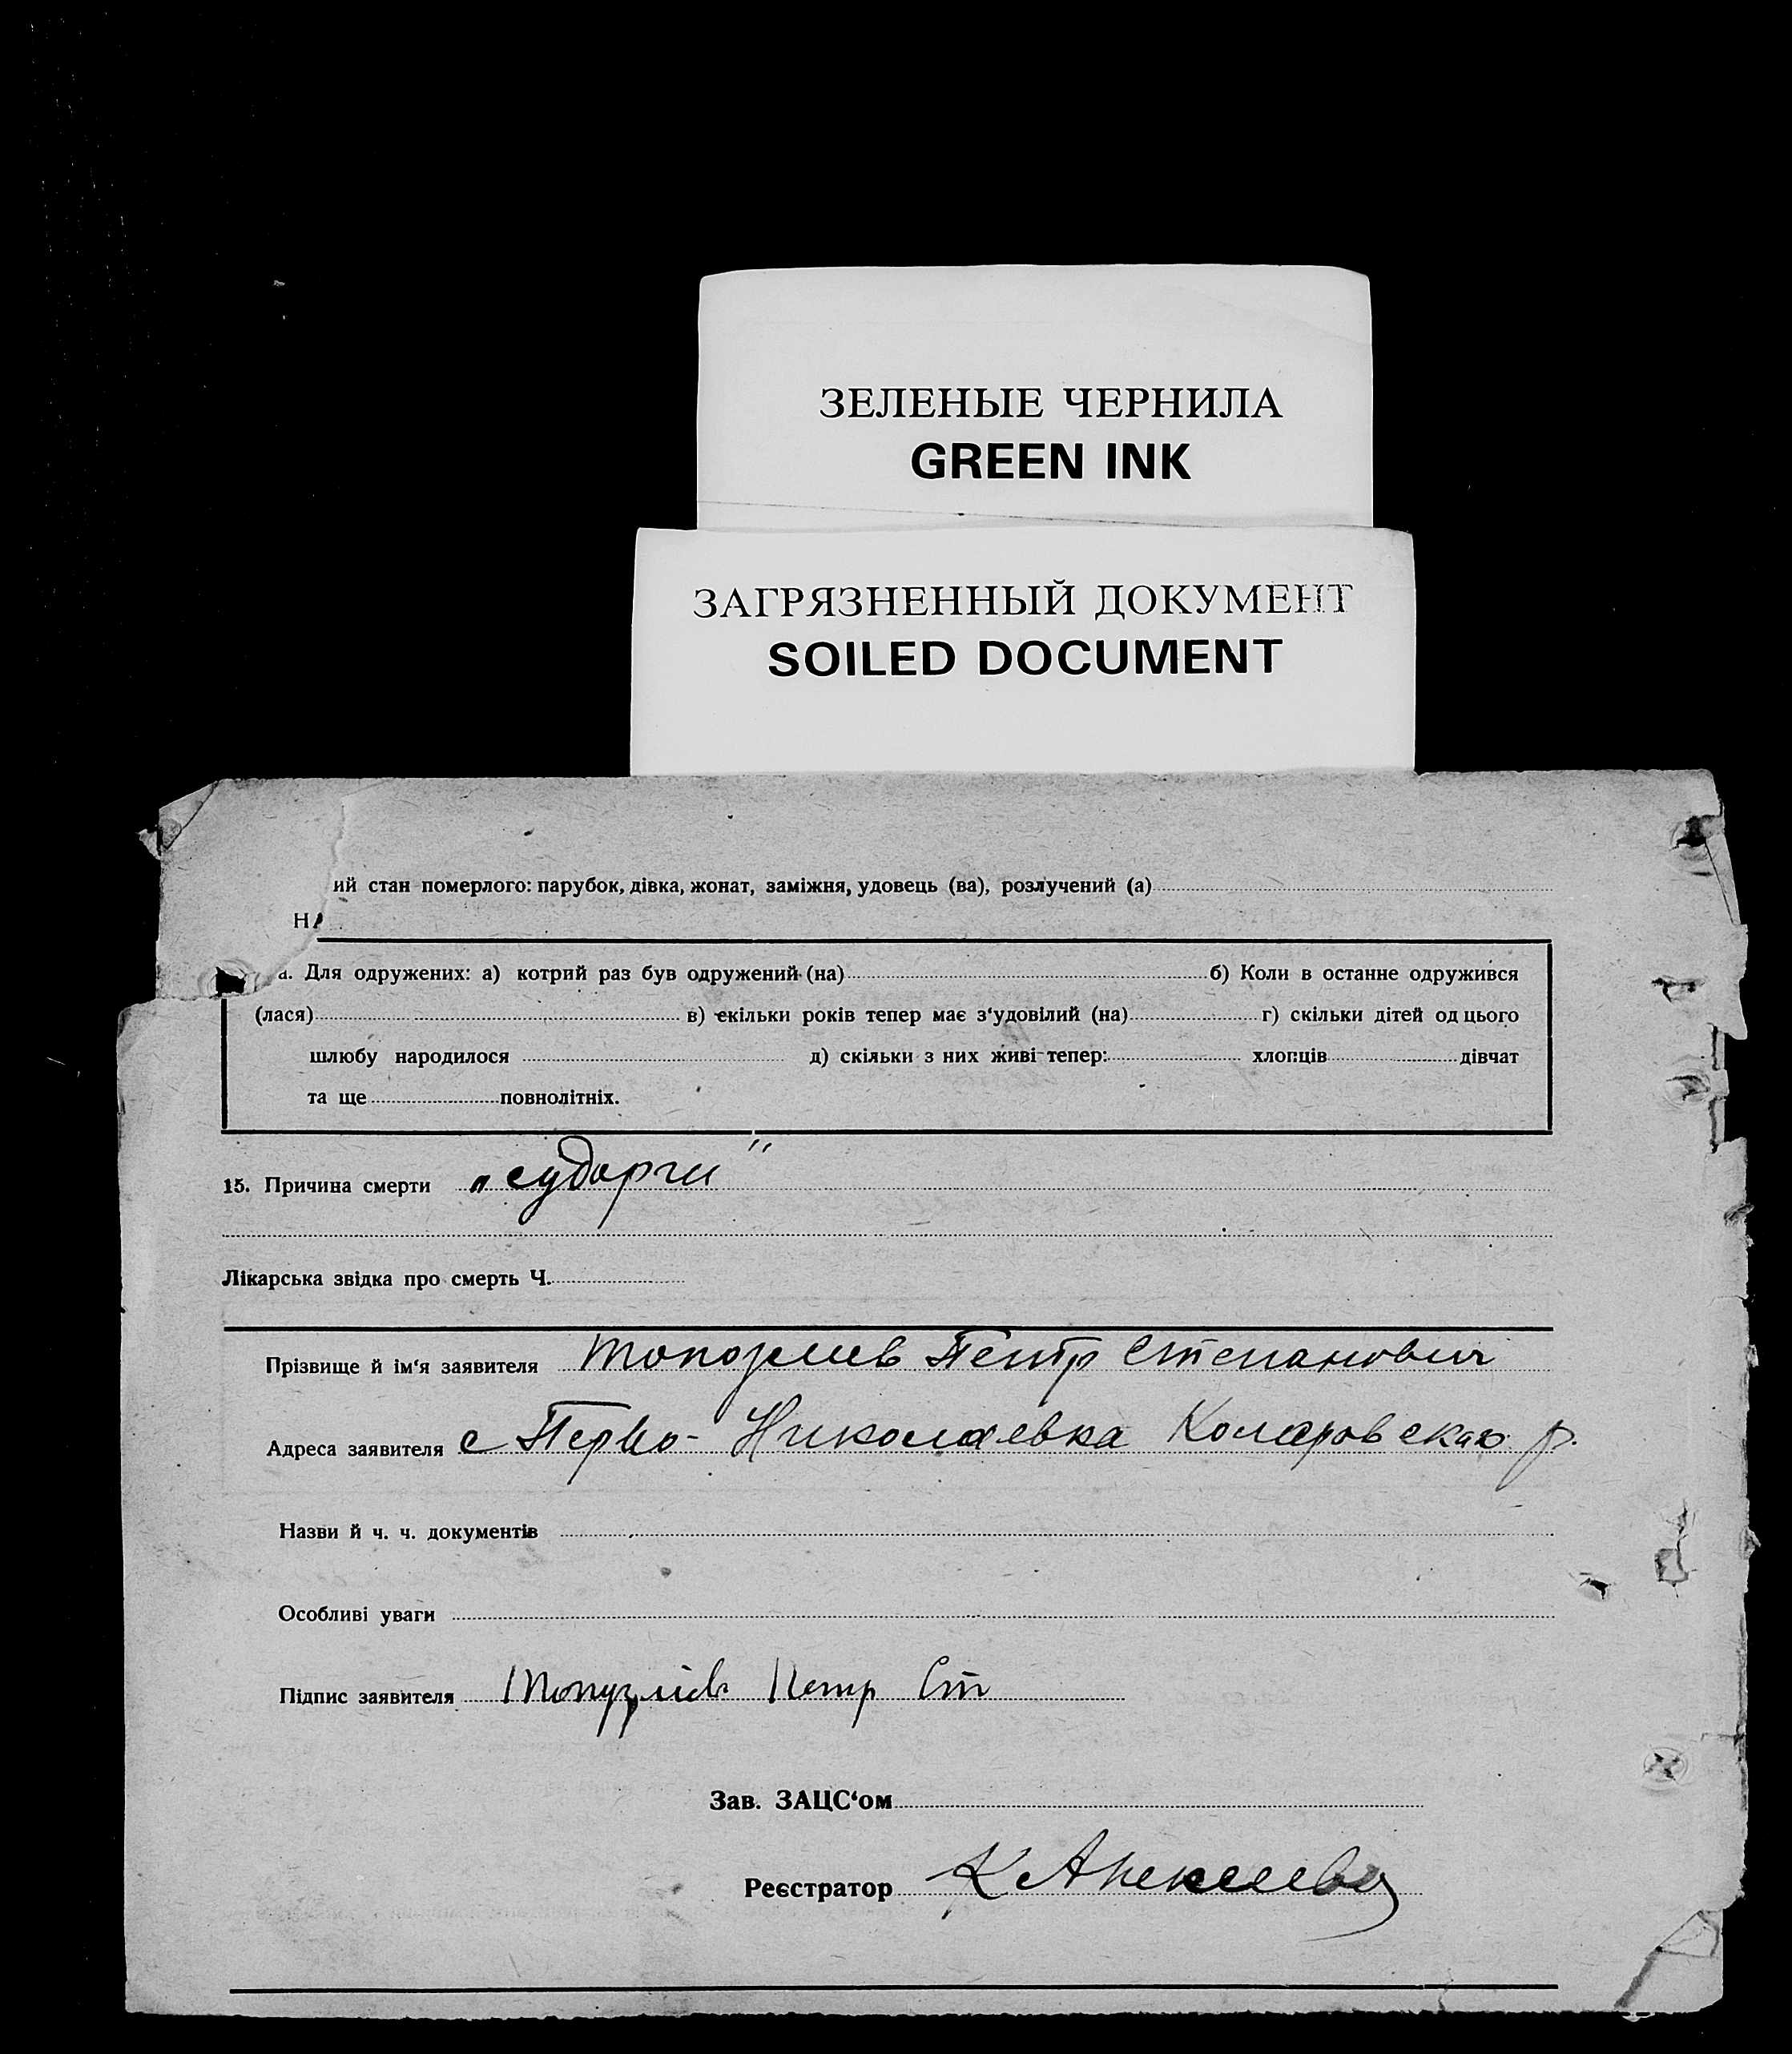 ЗЕЛЕНЫЕ ЧЕРНИЛА
GREEN INK
ЗАГРЯЗНЕННЫЙ ДОКУМЕНТ
SOILED DOCUMENT
ий стан померлого: парубок, дівка, жонат, заміжня, удовець (ва), розлучений (а)
НА
а. Для одружених: а) котрий раз був одружений (на) б) Коли в останне одружився
(лася) в) скільки років тепер має з‘удовілий (на) г) скільки дітей од цього
шлюбу народилося д) скільки з них живі тепер: хлопців дівчат
та ще повнолітніх.
15. Причина смерти „судорги"
Лікарська звідка про смерть Ч.
Прізвище й ім‘я заявителя Петр Степанович
Адреса заявителя с Перво-Николаевка Коларовская р.
Назви й ч. ч. документів
Особливі уваги
Підпис заявителя Петр Ст
Зав. ЗАЦС‘ом
Реєстратор